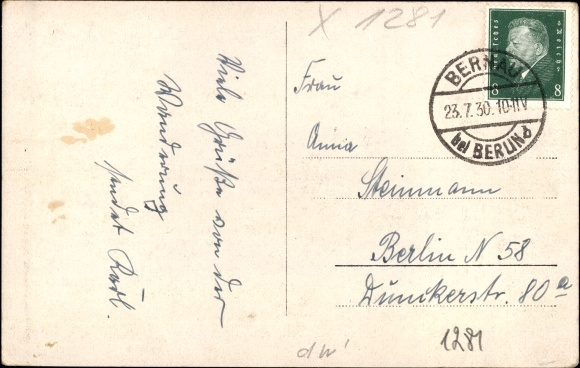 X 1281
Deutsches Reich
8 8
BERNAU
23.7.30.10-11V
bei BERLIN d
Frau
Anna
Steinmann
Berlin N 58
Dunckerstr. 80a
1281
Viele Grüße von der
Wanderung
sendet Karl.